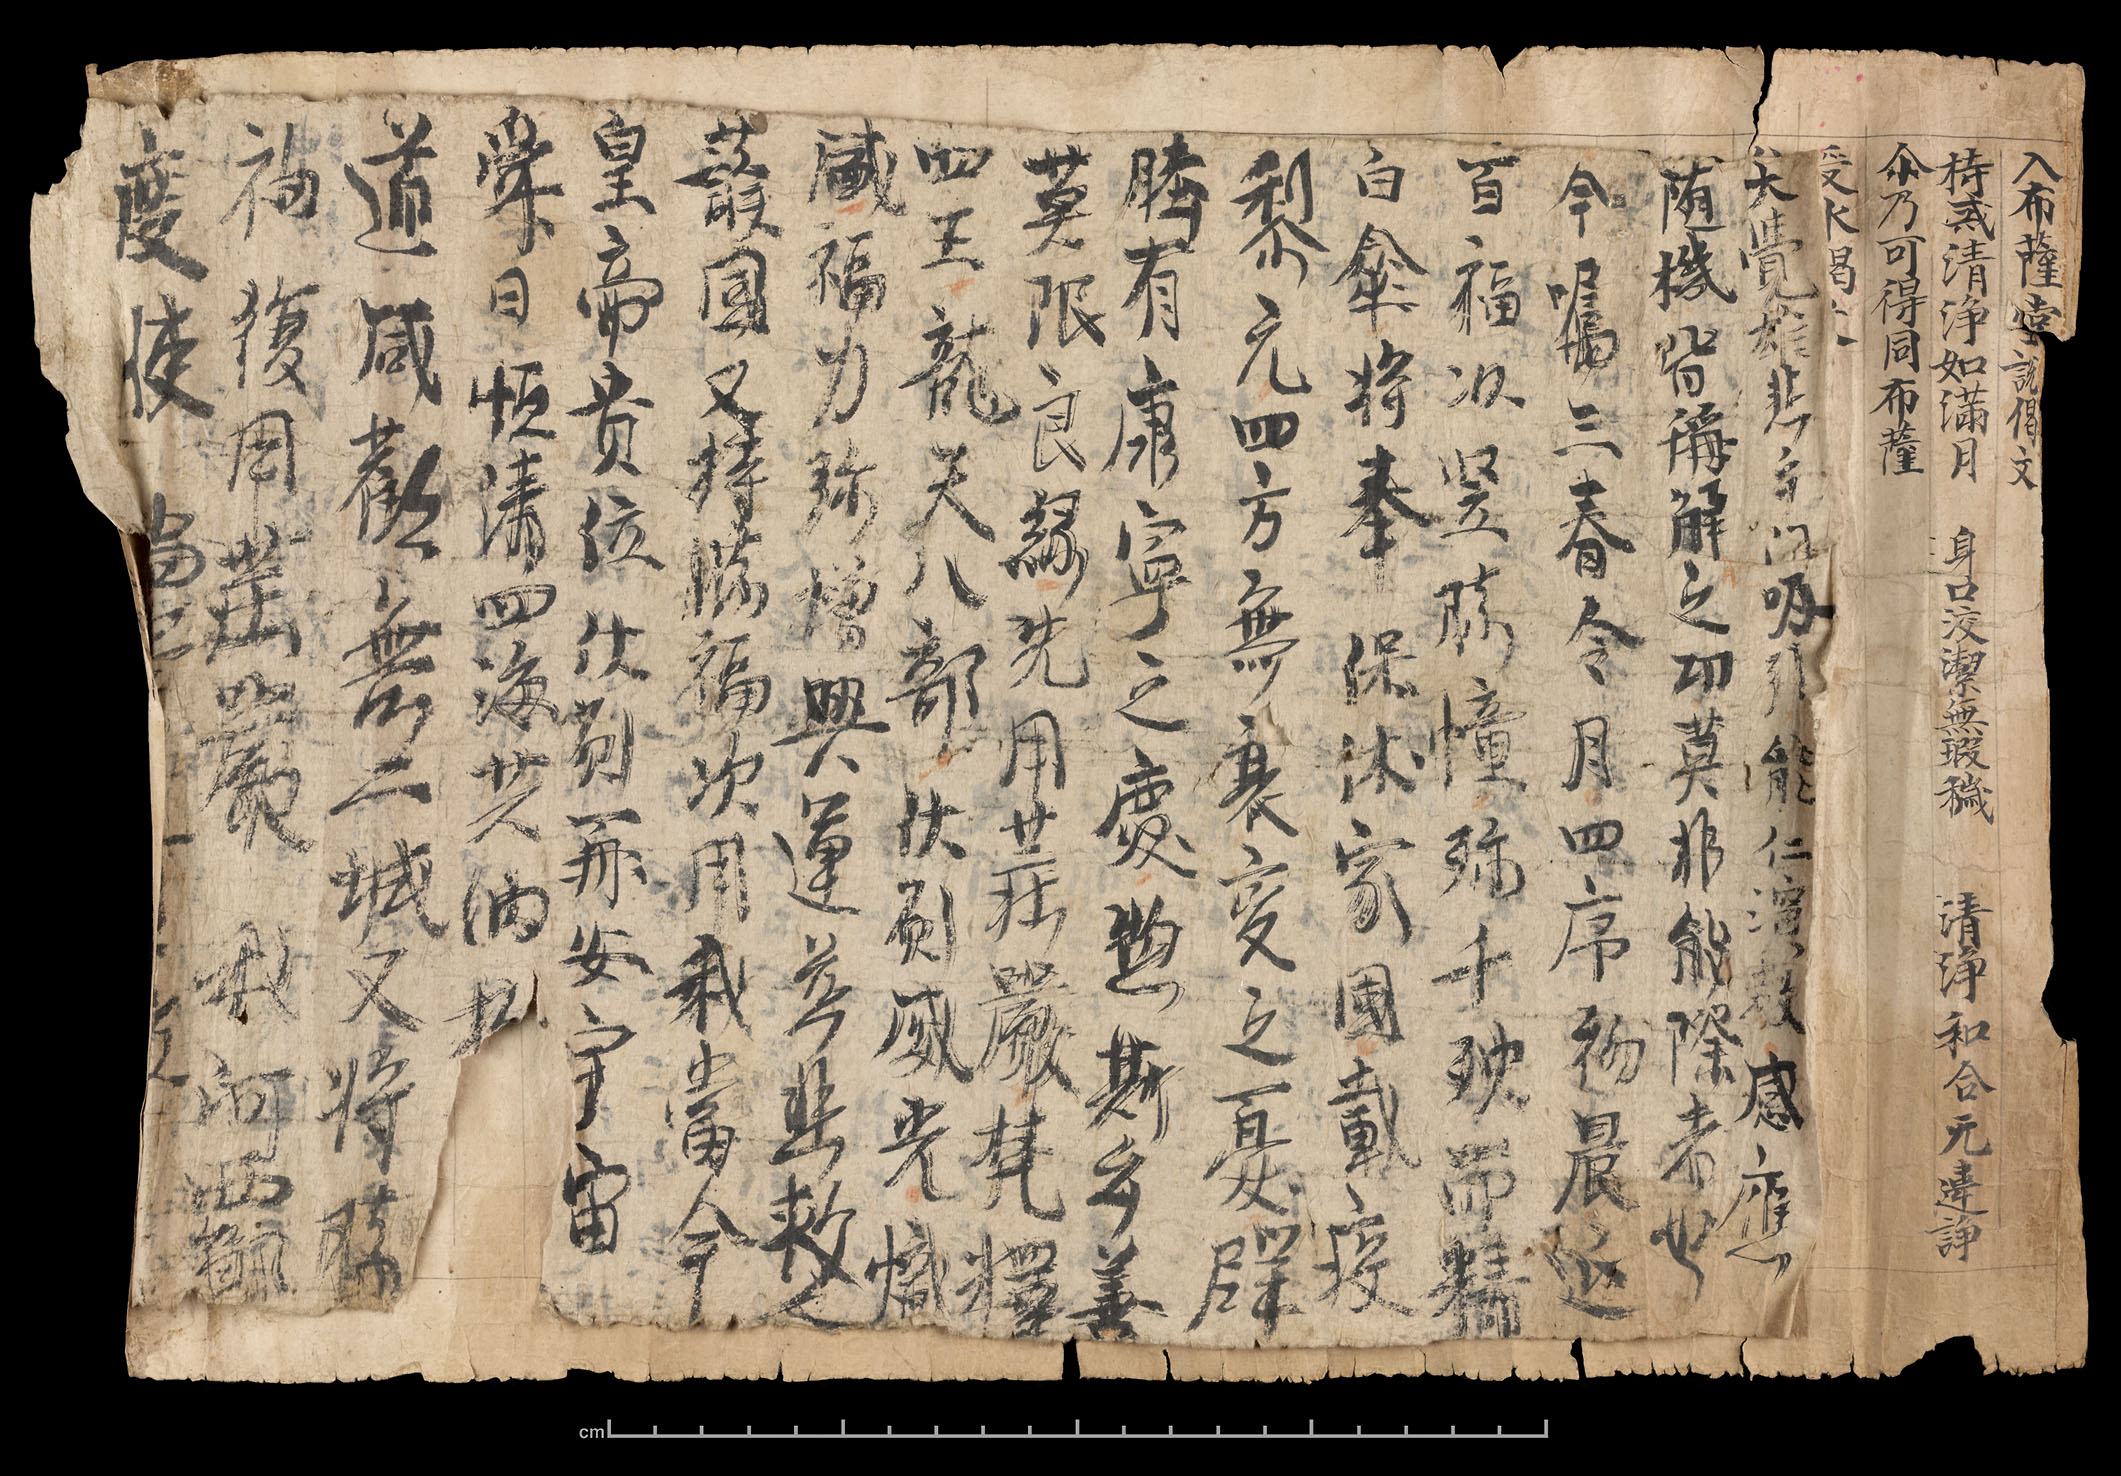 入布薩堂說偈文
持戒清淨如滿月 身口皎潔無瑕穢 清淨和合无違諍
尒乃可得同布薩
受水偈文
夫覺雄悲主門吸引能仁演教感應
随機皆稱解之切莫非能際者也
今囑三春令月四序初晨延
百福以竪勝幢殄千殃而轉
白傘將奉保休家國載扙
梨元四方無衰變之憂辟
牓有康寧之慶惣斯多善
莫限良緣先用莊嚴梵釋
四王龍天八部伏願威光熾
盛福力弥增興運慈悲救之
護國又持勝福次用我當今
皇帝貴位伏願再安宇宙
舜日恒清四海共納
道咸歡無二城又將勝
福復用莊嚴 我河西節
度使